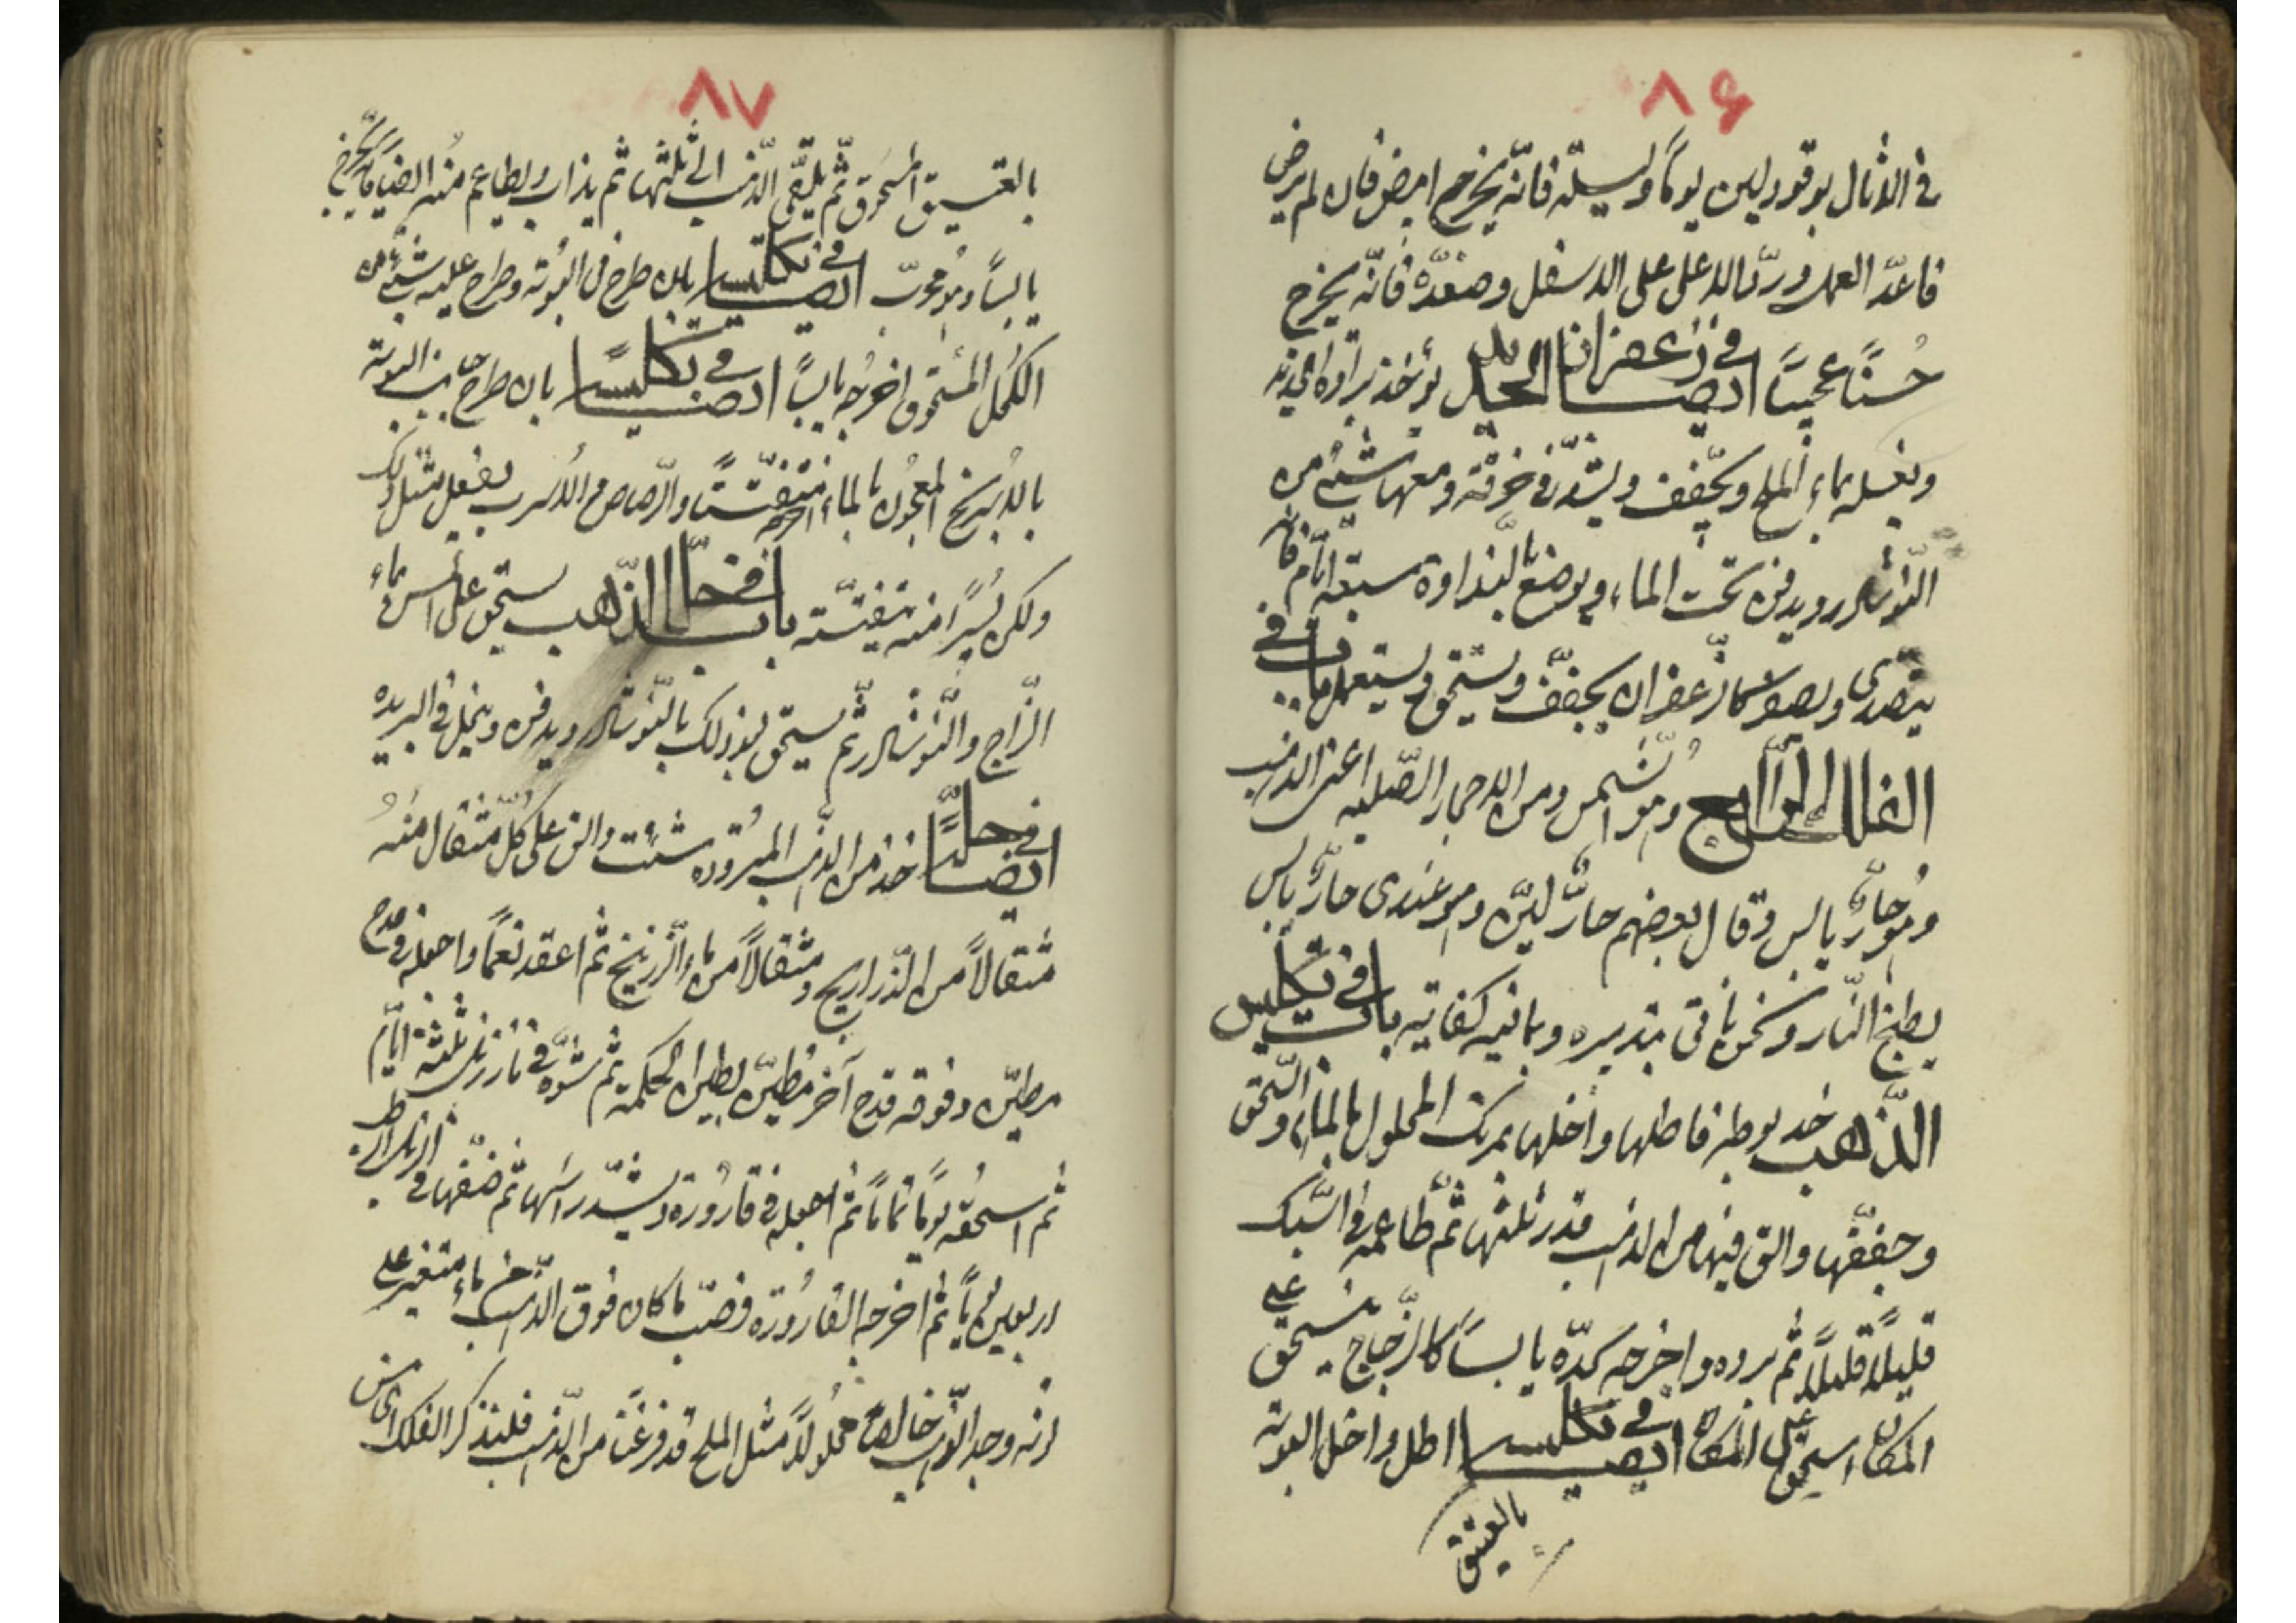 ۸۶
في الاثال بوقود لين يوما وليلة فانه يخرج ابيض فان لم يبيض
فاعد العمل ورد الاعلى على الاسفل وصعده فانه يخرج
حسنًا عجيبًا ايضا في زعفران الحديد يؤخذ برادة الحديد
ويغسل بماء الملح ويجفف ويشد في خرقة ومعها شيء من
النوشادر ويدفن تحت الماء ويوضع بالنداوة سبعة ايام فانه
يتصدى ويصير كالزعفران يجفف ويستحق ويستعمل باب في
الفلك الرابع وهو الشمس ومن الاحجار الصلبة اعنى الذهب
وهو حارٌّ يابس وقال بعضهم حارٌّ لين وهو عندى حارٌّ يابس
يطبخ النار ونحن ناتى بتدبيره وما فيه كفاية باب في تكليس
الذهب خذ بوطه فاطلها داخلها بمرتك المحلول بالماء والسحق
وجففها والق فيها من الذهب قدر ثلثها ثم طاعمه في السبك
قليلًا قليلًا ثم برده واخرجه كدّه يابسًا كالزجاج ينسحق على
المكان اسحق على المكان ايضا في تكليسه اطل داخل البوته
بالعتيق
۸۷
بالعتيق المسحوق ثم يلقى الذهب الى ثلثها ثم يذاب ويطاعم منه ايضا فانه يخرج
يابسًا وهو مجرب ايضا في تكليسه بان طرح في البوته وطرح عليه شيئا من
الكحل المسحوق اخرجه يابسًا ايضا في تكليسه بان طرح حب في البوته
بالاسرنج المعجون بالماء اخرجه متفتتًا والرصاص الاسرب يفعل مثل ذلك
ولكن يسيرًا منه تفتته باب في حل الذهب يستحق على الشمس بماء
الزاج والنوشادر ثم يستحق بعد ذلك بالنوشادر ويدفن وينحل في البريده
ايضا في حله خذ من الذهب المبرود ما شئت والق على كل مثقال منه
مثقالًا من الذراريح ومثقالًا من ماء الزرنيخ ثم اعقد نعمًا واجعله في قدح
مطين وفوقه قدح آخر مطين بطين الحكمة ثم شوّه في نار زبل ثلثة ايام
ثم اسحقه يومًا تمامًا ثم اجعله في قارورة وشد راسها ثم ضعها في الزبل الرطب
اربعين يومًا ثم اخرج القارورة فصب ما كان فوق الذهب من ماء متغير على
انه وجد الذهب خالصًا محلولًا مثل الملح قد فرغنا من الذهب فلنذكر الفلك الخامس